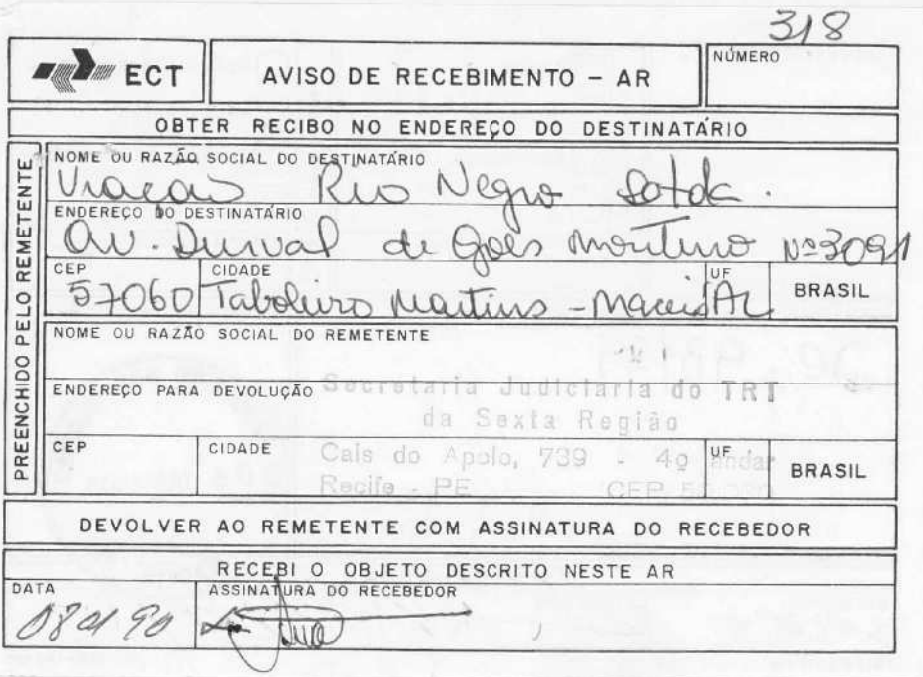 318
ECT
AVISO DE RECEBIMENTO – AR
NÚMERO
OBTER RECIBO NO ENDEREÇO DO DESTINATÁRIO
PREENCHIDO PELO REMETENTE
NOME OU RAZÃO SOCIAL DO DESTINATÁRIO
Viação Rio Negro Ltda.
ENDEREÇO DO DESTINATÁRIO
Av. Durval de Goes Monteiro Nº 3091
CEP CIDADE UF
57060 Taboleiro Martins - Maceió AL BRASIL
NOME OU RAZÃO SOCIAL DO REMETENTE
ENDEREÇO PARA DEVOLUÇÃO Secretaria Judiciaria do TRT
da Sexta Região
CEP CIDADE Cais do Apolo, 739 - 4º andar UF BRASIL
Recife - PE CEP
DEVOLVER AO REMETENTE COM ASSINATURA DO RECEBEDOR
RECEBI O OBJETO DESCRITO NESTE AR
DATA ASSINATURA DO RECEBEDOR
90